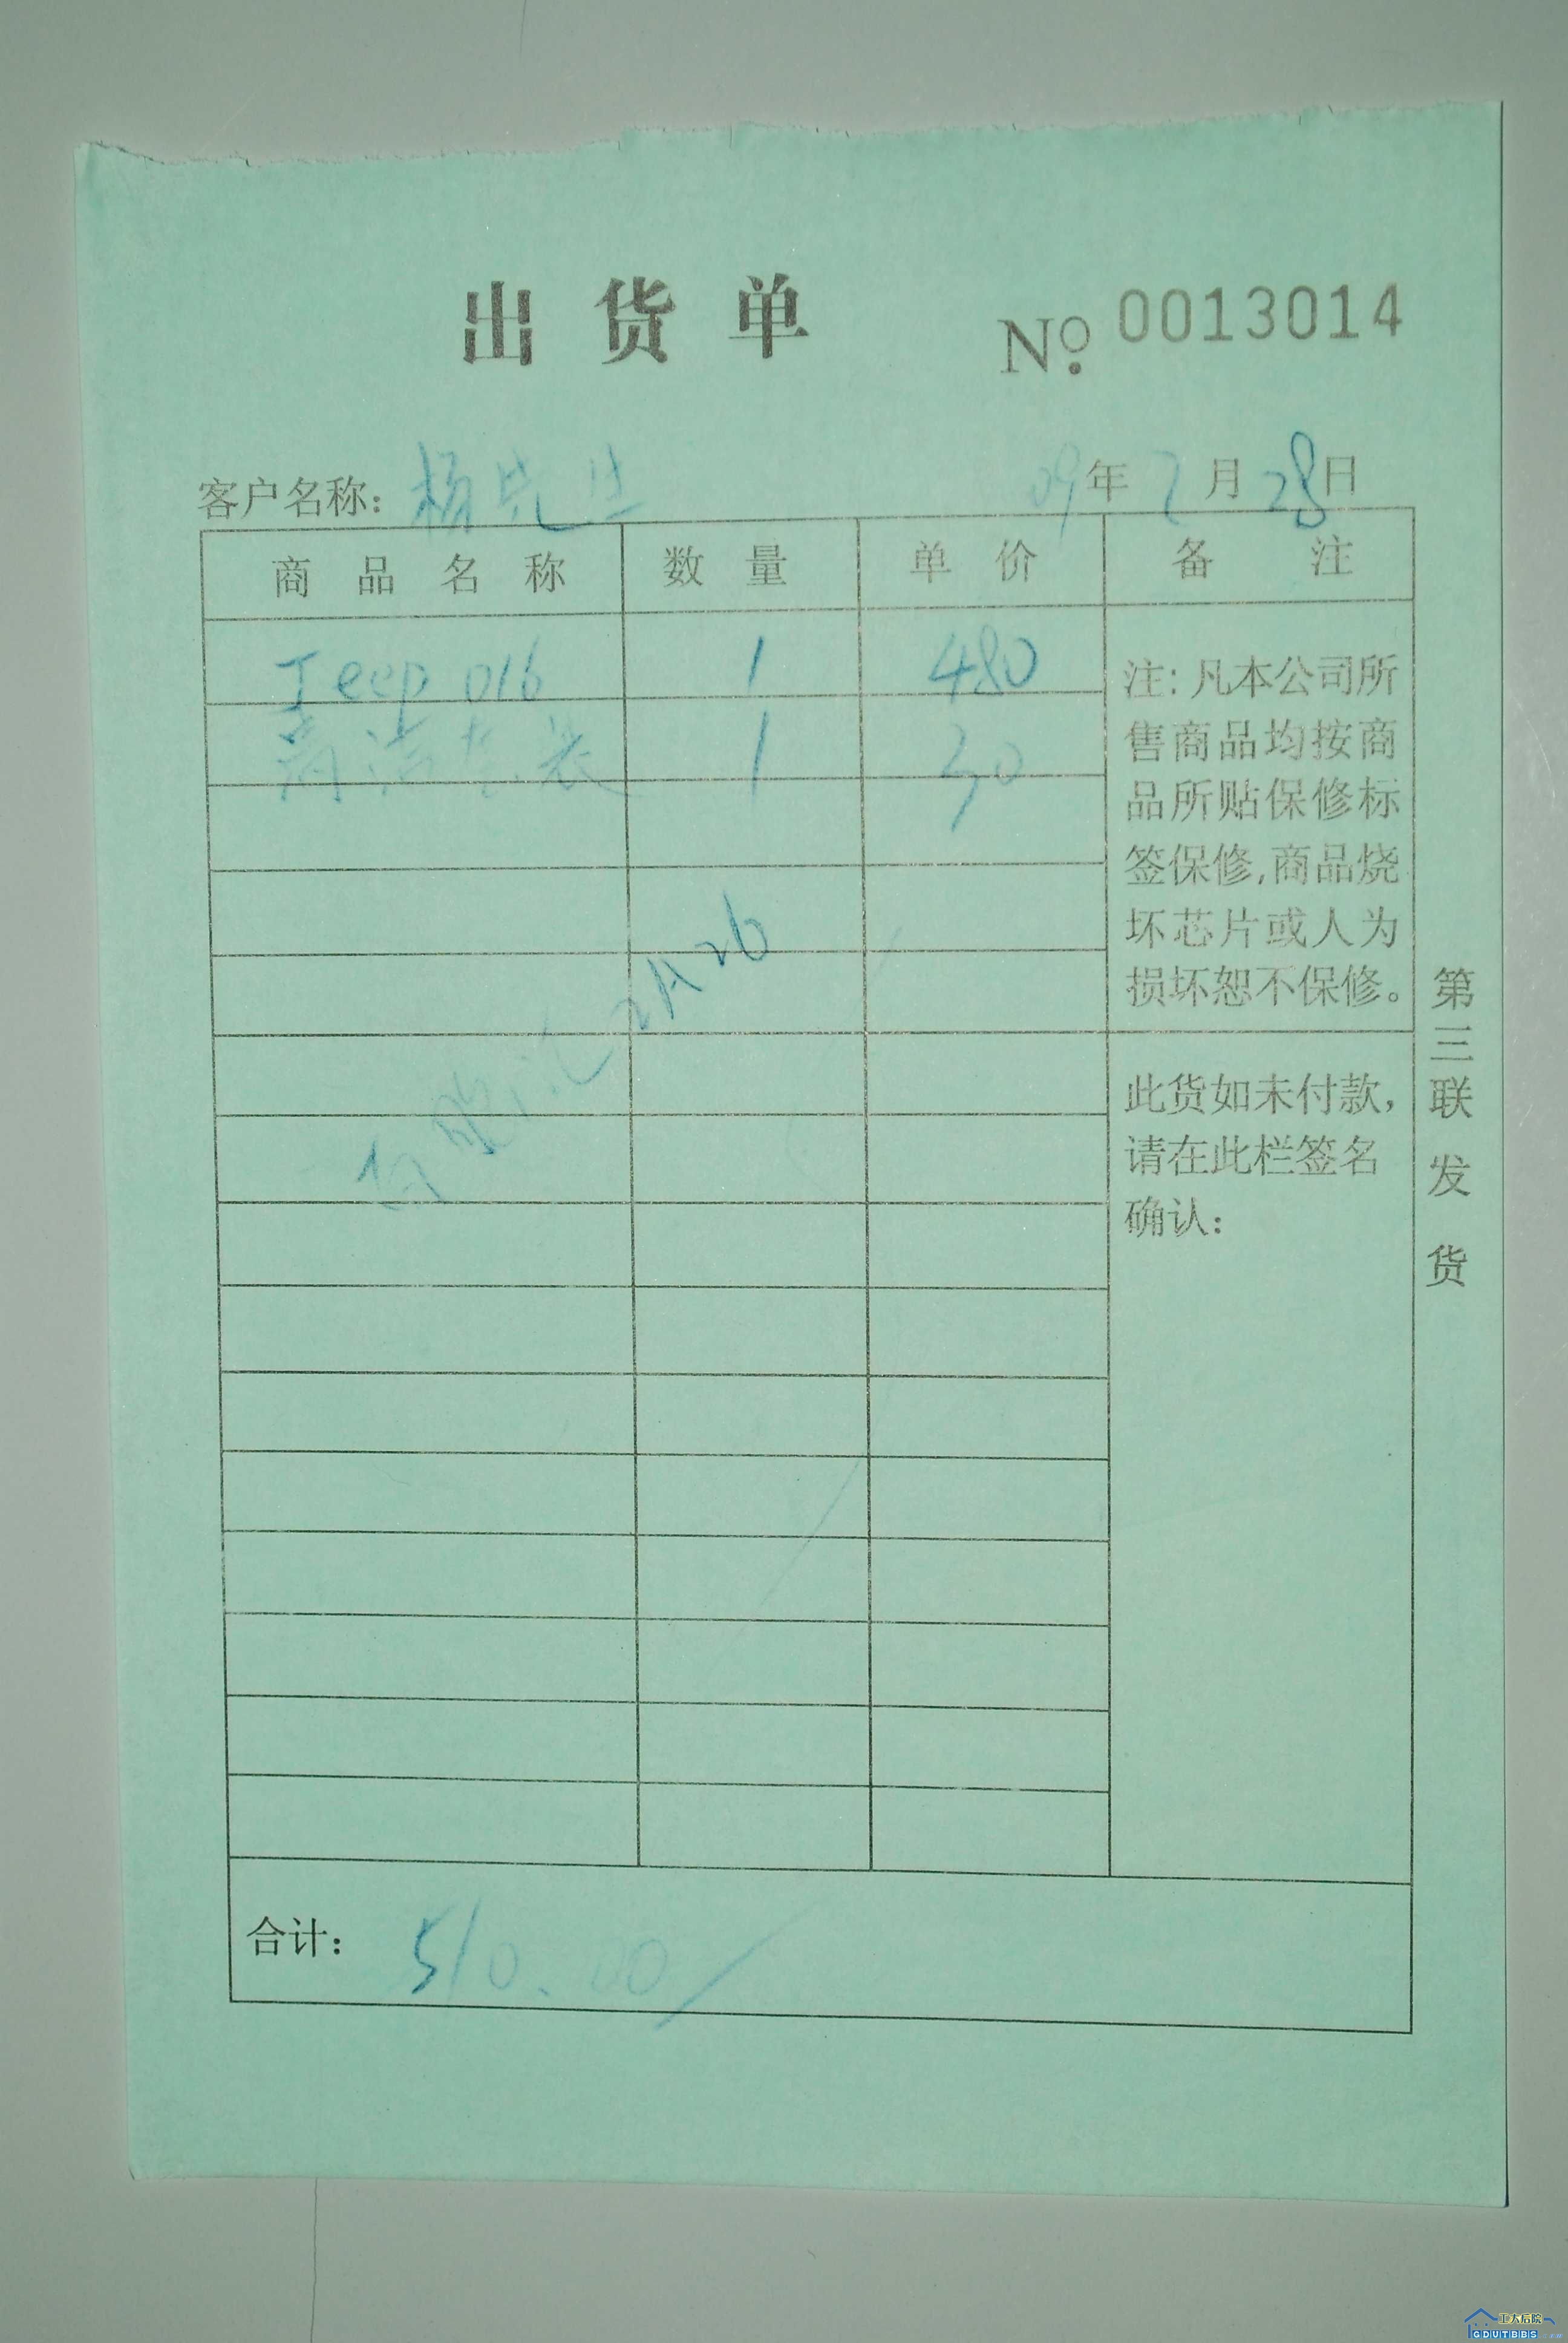 出货单 No. 0013014
客户名称: 杨先生 09年7月28日
商品名称 数量 单价 备注
Jeep 016 1 480
1 30
注: 凡本公司所
售商品均按商
品所贴保修标
签保修,商品烧
坏芯片或人为
损坏恕不保修。
此货如未付款,
请在此栏签名
确认:
第三联发货
合计: 510.00
工大后院
GDUTBBS